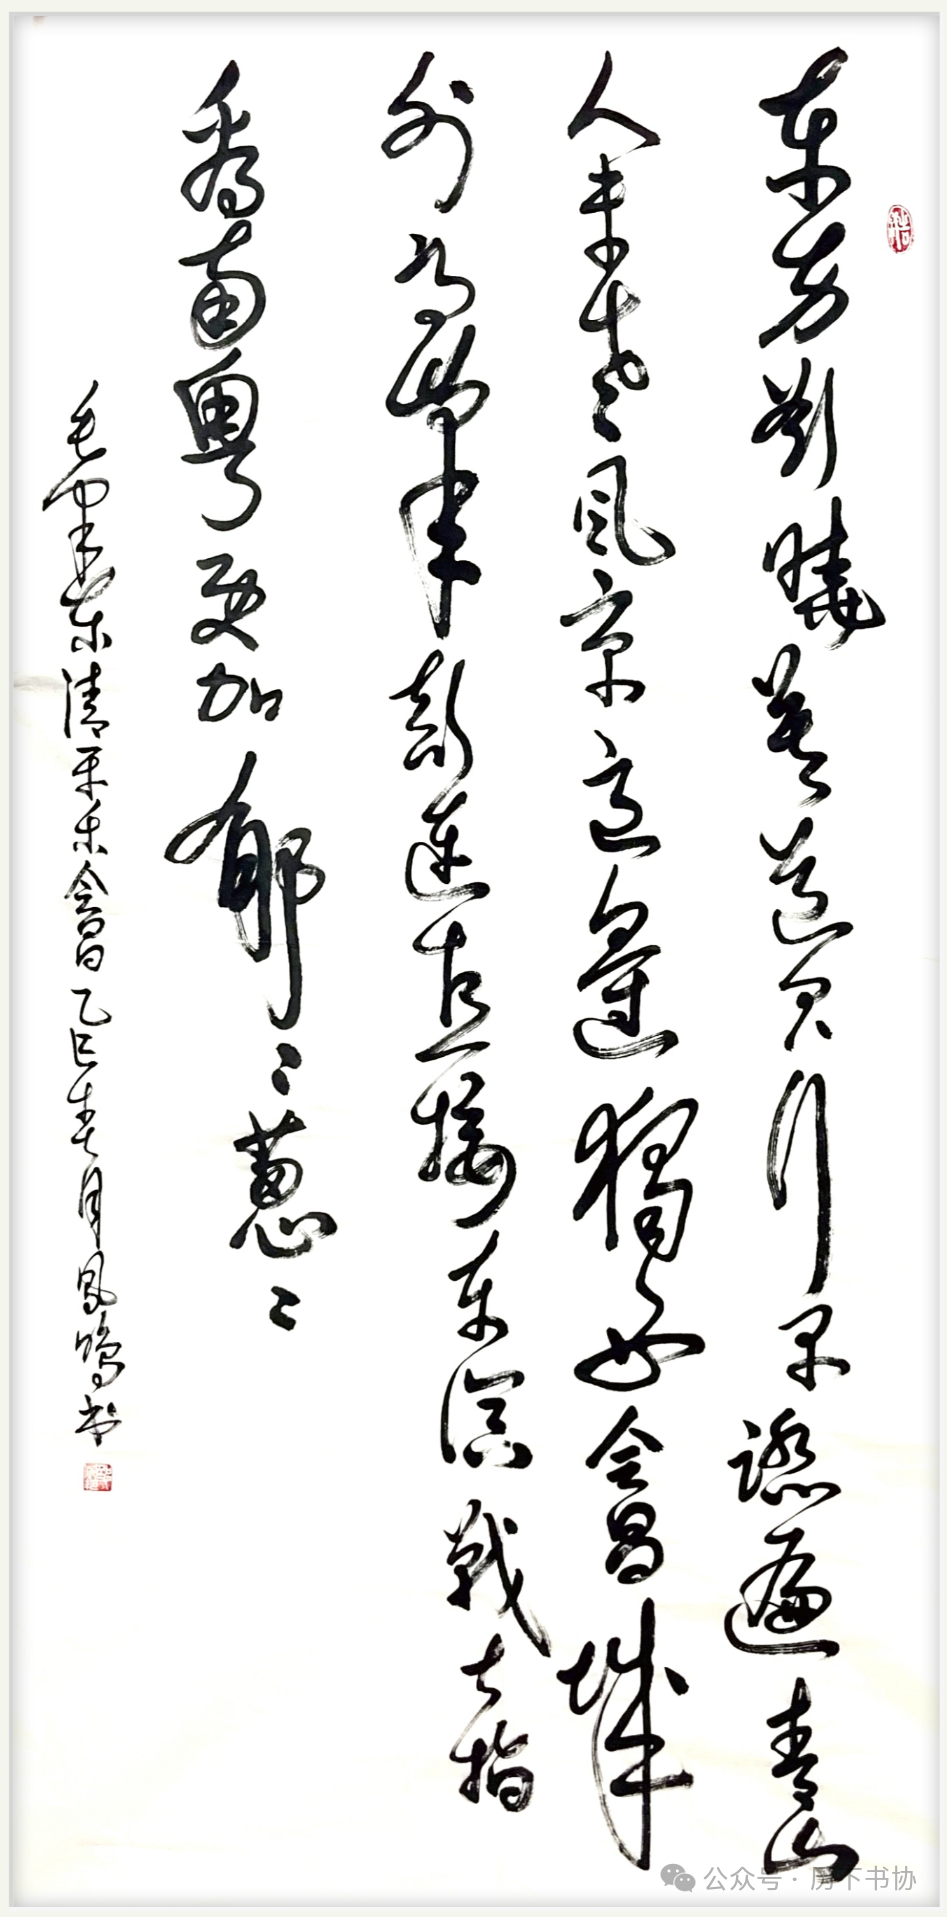 东方欲晓莫道君行早踏遍青山
人未老风景这边獨好会昌城
外高峰颠连直接东溟战士指
看南粤更加郁々葱々
毛泽东清平乐会昌乙巳春月凤鸣书
公众号 · 下书协